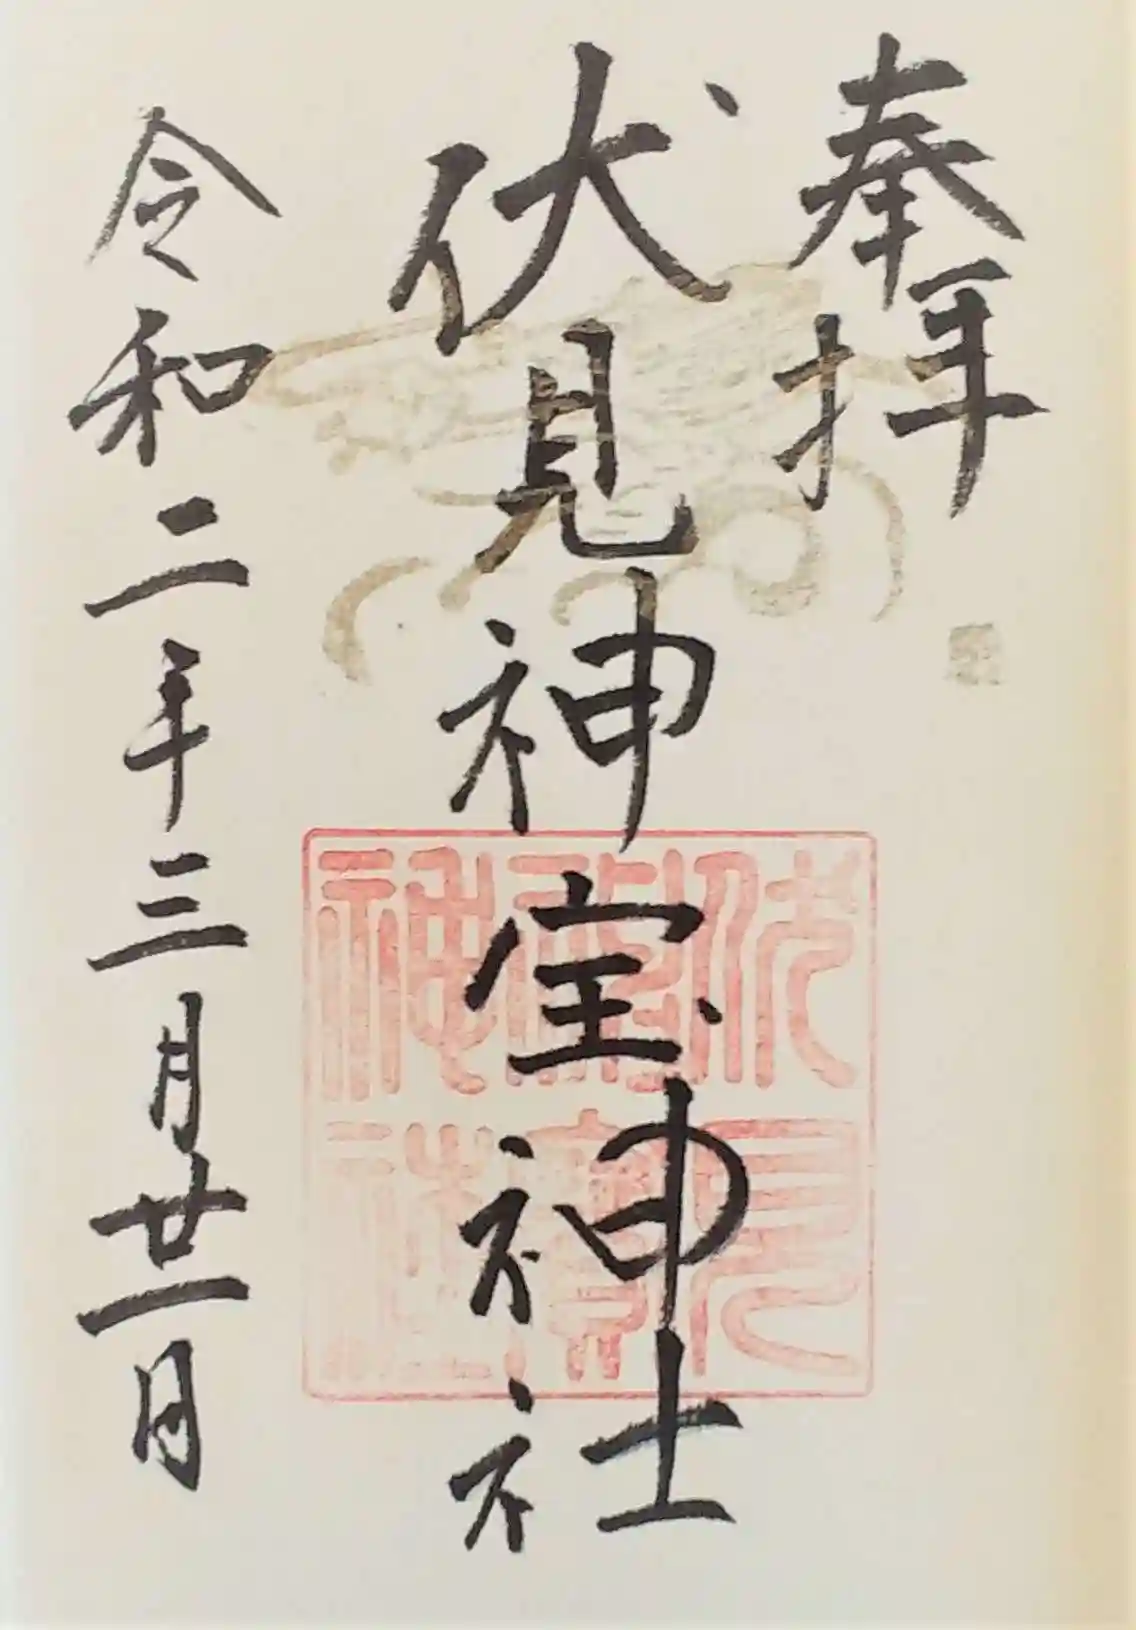 奉拝
伏見神宝神社
伏見神宝神社
令和二年三月廿一日